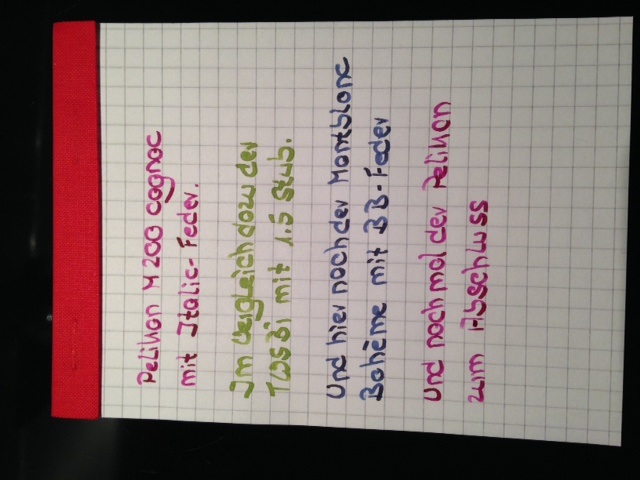 Pelikan M 200 cognac
mit Italic-Feder.
Im Vergleich dazu der
TWSBi mit 1.5 Stub.
Und hier noch der Montblanc
Bohème mit BB-Feder
Und noch mal der Pelikan
zum Abschluss